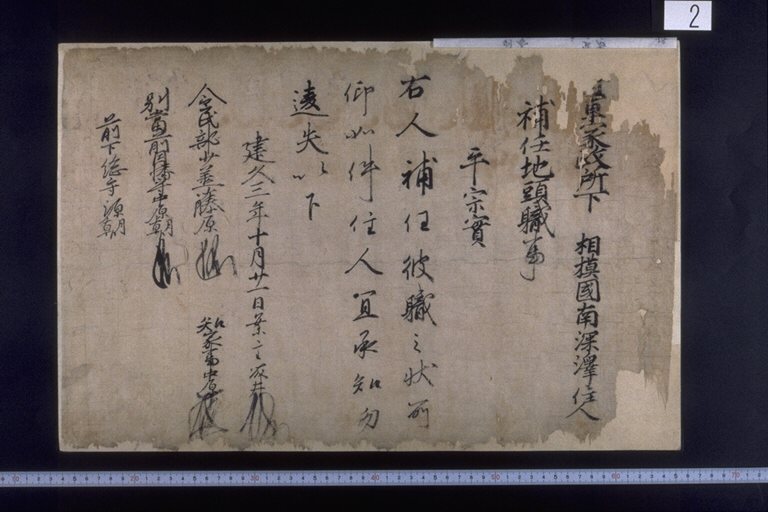 2
下 相摸國南深澤住人
補任地頭職事
平宗實
右人補任彼職之狀所
仰如件住人宜承知勿
違失以下
建久三年十月廿一日案主
知家事中原
令民部少丞藤原
別當前因幡守中原朝臣
前下総守源朝臣